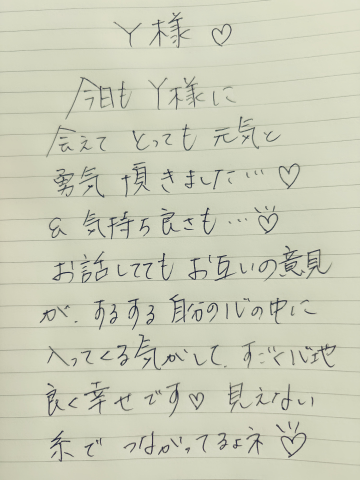 Y様 ♡
今日も Y様に
会えて とっても 元気と
勇気 頂きました… ♡
& 気持ち良さも…♡
お話ししてても お互いの意見
が、するする 自分の心の中に
入ってくる気がして、すごく心地
良く幸せです♡ 見えない
糸で つながってるよネ♡